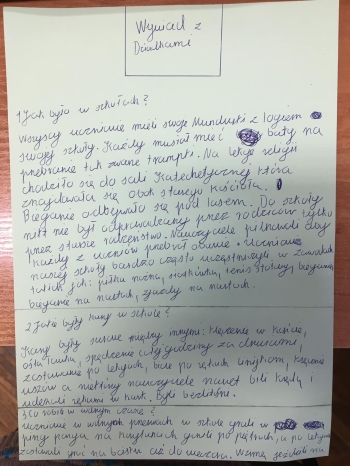 Wywiad z
Dziadkami
1 Jak było w szkołach?
Wszyscy uczniowie mieli swoje Mundurki z logiem
swojej szkoły. Każdy musiał mieć buty na
przebranie tak zwane trampki. Na lekcje religii
chodziło się do sali Katechetycznej która
znajdowała się obok starego kościoła.
Bieganie odbywało się pod lasem. Do szkoły
nikt nie był odprowadzany przez rodziców tylko
przez starsze rodzeństwo. Nauczyciele pilnowali żeby
każdy z uczniów przebrał obuwie. Uczniowie
naszej szkoły bardzo często uczestniczyli w zawodach
takich jak: piłka nożna, siatkówka, tenis stołowy, bieganie,
bieganie na nartach, zjazdy na nartach.
2 Jakie były kary w szkole?
Kary były surowe między innymi: klęczenie w kącie,
ośla ławka, spędzenie całej godziny za drzwiami,
zostawanie po lekcjach, bicie po rękach
uszów a niektórzy nauczyciele nawet bili kredą i
w hark. Byli bezlitośni.
3 Co robić w wolnym czasie?
uczniowie w wolnych przerwach w szkole grali w
ping ponga na korytarzach po piętrach, a po lekcjach
zostawali na boisku aż do wieczora. Wzimę jeździli na